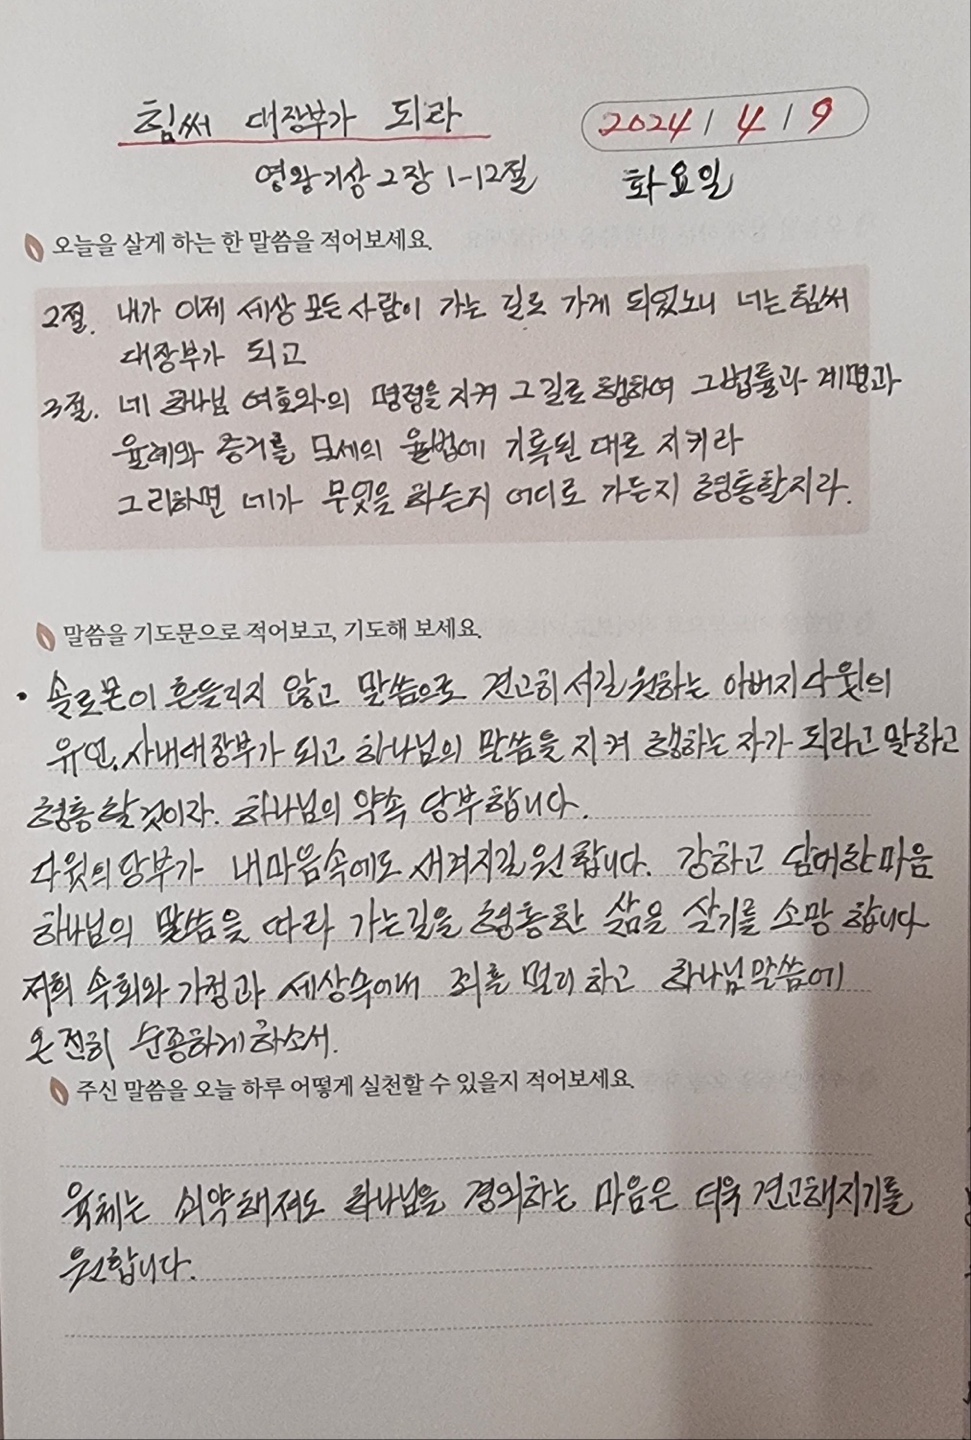 힘써 대장부가 되라
2024 / 4 / 9
열왕기상 2장 1-12절
화요일
오늘을 살게 하는 한 말씀을 적어보세요.
2절. 내가 이제 세상 모든 사람이 가는 길로 가게 되었노니 너는 힘써
대장부가 되고
3절. 네 하나님 여호와의 명령을 지켜 그 길로 행하여 그 법률과 계명과
율례와 증거를 모세의 율법에 기록된 대로 지키라
그리하면 네가 무엇을 하든지 어디로 가든지 형통할지라.
말씀을 기도문으로 적어보고, 기도해 보세요.
• 솔로몬이 흔들리지 않고 말씀으로 견고히 서길 원하는 아버지 다윗의
유언. 사내대장부가 되고 하나님의 말씀을 지켜 행하는 자가 되라고 말하고
형통할 것이라. 하나님의 약속 당부합니다.
다윗의 당부가 내마음속에도 새겨지길 원합니다. 강하고 담대한 마음
하나님의 말씀을 따라 가는길을 형통한 삶을 살기를 소망합니다
저희 속회와 가정과 세상속에서 죄를 멀리 하고 하나님 말씀에
온전히 순종하게 하소서.
주신 말씀을 오늘 하루 어떻게 실천할 수 있을지 적어보세요.
육체는 쇠약해져도 하나님을 경외하는 마음은 더욱 견고해지기를
원합니다.